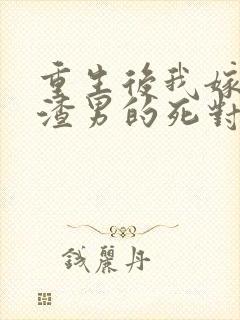 重生後我嫁
渣男的死對
錢麗丹